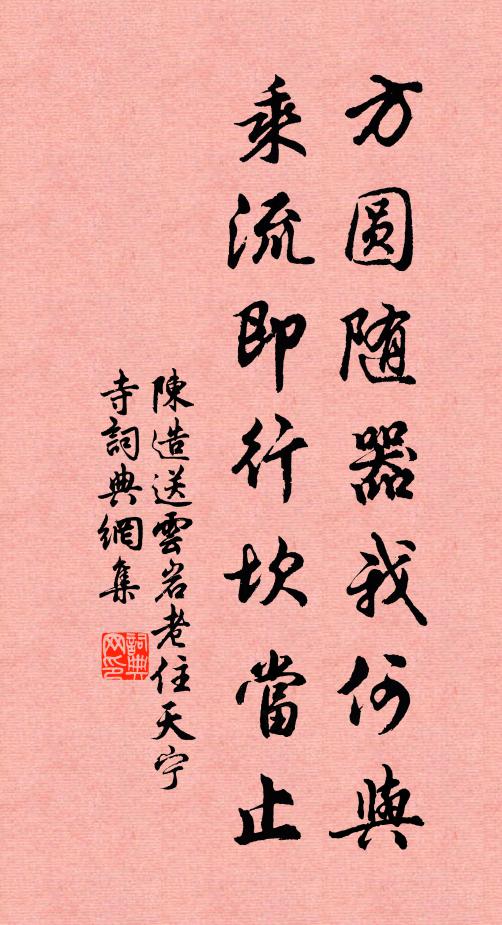 方圆随器我何與
乘流即行坎當止
陳造送雲岩老住天宁
寺詞典網集
詞典网印